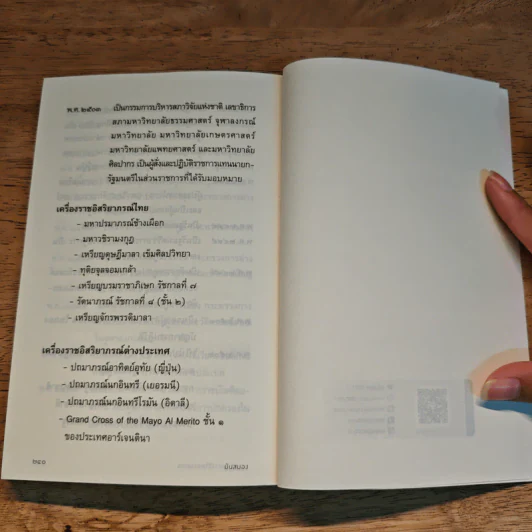 พ.ศ. ๒๕๐๓ เป็นกรรมการบริหารสภาวิจัยแห่งชาติ เลขาธิการ
สภามหาวิทยาลัยธรรมศาสตร์ จุฬาลงกรณ์
มหาวิทยาลัย มหาวิทยาลัยเกษตรศาสตร์
มหาวิทยาลัยแพทยศาสตร์ และมหาวิทยาลัย
ศิลปากร เป็นผู้สั่งและปฏิบัติราชการแทนนายก-
รัฐมนตรีในส่วนราชการที่ได้รับมอบหมาย
เครื่องราชอิสริยาภรณ์ไทย
- มหาปรมาภรณ์ช้างเผือก
- มหาวชิรามงกุฎ
- เหรียญดุษฎีมาลา เข็มศิลปวิทยา
- ทุติยจุลจอมเกล้า
- เหรียญบรมราชาภิเษก รัชกาลที่ ๗
- รัตนาภรณ์ รัชกาลที่ ๘ (ชั้น ๒)
- เหรียญจักรพรรดิมาลา
เครื่องราชอิสริยาภรณ์ต่างประเทศ
- ปถมาภรณ์อาทิตย์อุทัย (ญี่ปุ่น)
- ปถมาภรณ์นกอินทรี (เยอรมนี)
- ปถมาภรณ์นกอินทรีโรมัน (อิตาลี)
- Grand Cross of the Mayo Al Merito ชั้น ๑
ของประเทศอาร์เจนตินา